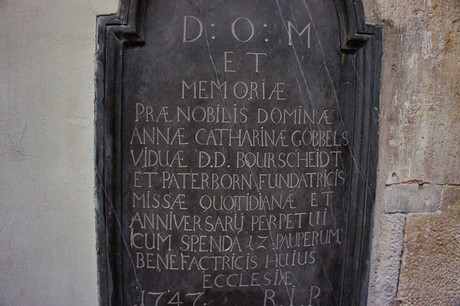 D:O:M
ET
MEMORIÆ
PRÆNOBILIS DOMINÆ
ANNÆ CATHARINÆ GÖBBELS
VIDUÆ D.D. BOURSCHEIDT
ET PATERBORN FUNDATRICIS
MISSÆ QUOTIDIANÆ ET
ANNIVERSARIJ PERPETUI
CUM SPENDA 12 PAUPERUM,
BENEFACTRICIS HUIUS
ECCLESIÆ
.1747. R.I.P